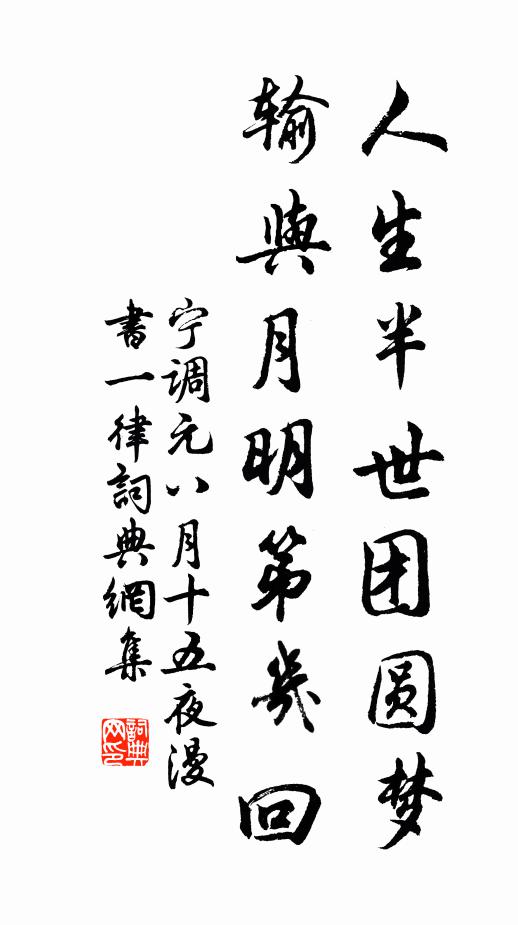 人生半世团圆梦
输與月明第幾回
宁调元八月十五夜漫
書一律詞典網集
詞典
网印